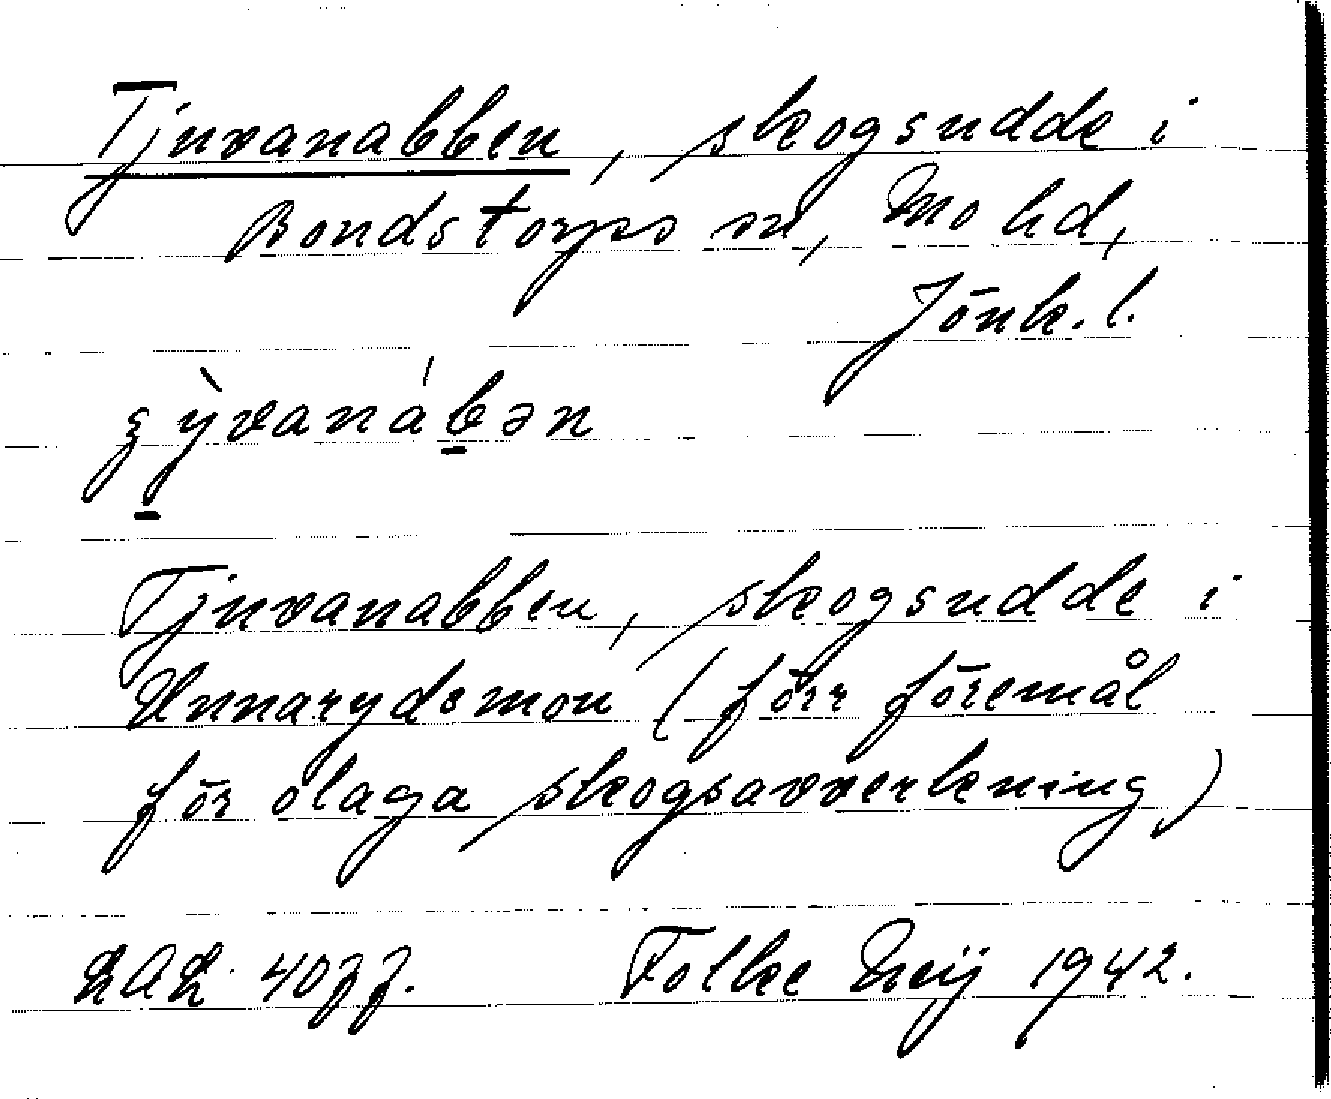 Tjuvanabben, skogsudde i
Bondstorps sn, Mo hd,
Jönk. l.
ʒỳvanábən
Tjuvanabben, skogsudde i
Unnarydsmon (förr föremål
för olaga skogsavverkning)
LAL 4077. Folke Meij 1942.